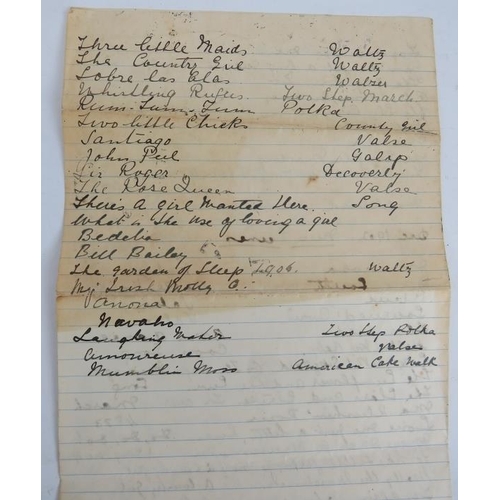 Three little Maids Waltz
The Country Girl Waltz
Sobre las Olas Walzer
Whistling Rufus Two Step March
Rum-Tum-Tum Polka
Two little Chicks County Girl
Santiago Valse
John Peel Galop
Sir Roger Decoverly
The Rose Queen Valse
There's a girl wanted there. Song
What is the use of loving a girl
Bedelia
Bill Bailey
The garden of Sleep Waltz
My Irish Molly O.
Anona
Navaho
Laughing Water Two Step Polka
Amoureuse Valse
Mumblin Moss American Cake Walk